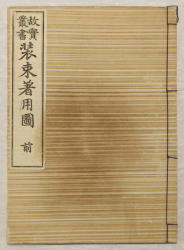 故實叢書
装束著用圖
前